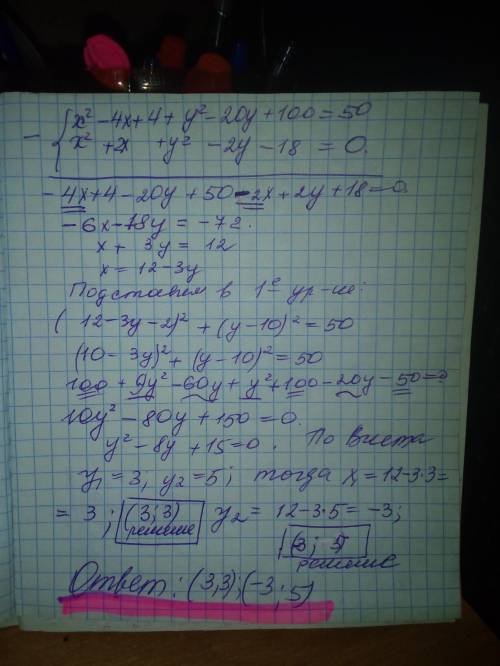 - { x² - 4x + 4 + y² - 20y + 100 = 50
x² + 2x + y² - 2y - 18 = 0.
- 4x + 4 - 20y + 50 - 2x + 2y + 18 = 0.
- 6x - 18y = -72.
x + 3y = 12
x = 12 - 3y
Подставляем в 1е ур-ие:
(12 - 3y - 2)² + (y - 10)² = 50
(10 - 3y)² + (y - 10)² = 50
100 + 9y² - 60y + y² + 100 - 20y - 50 = 0
10y² - 80y + 150 = 0.
y² - 8y + 15 = 0. По Виета
y₁ = 3, y₂ = 5; тогда x₁ = 12 - 3·3 =
= 3; (3; 3) y₂ = 12 - 3·5 = -3;
решение
(-3; 5)
решение
Ответ: (3,3); (-3; 5)